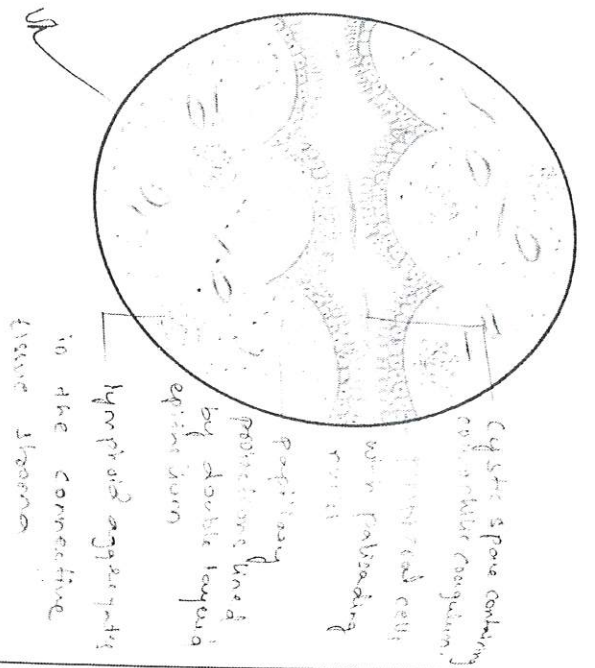 Cystic space containing
coagulum.
cells
with palisading
papillary
projections lined
by double layered
epithelium
lymphoid aggregates
in the connective
tissue stroma